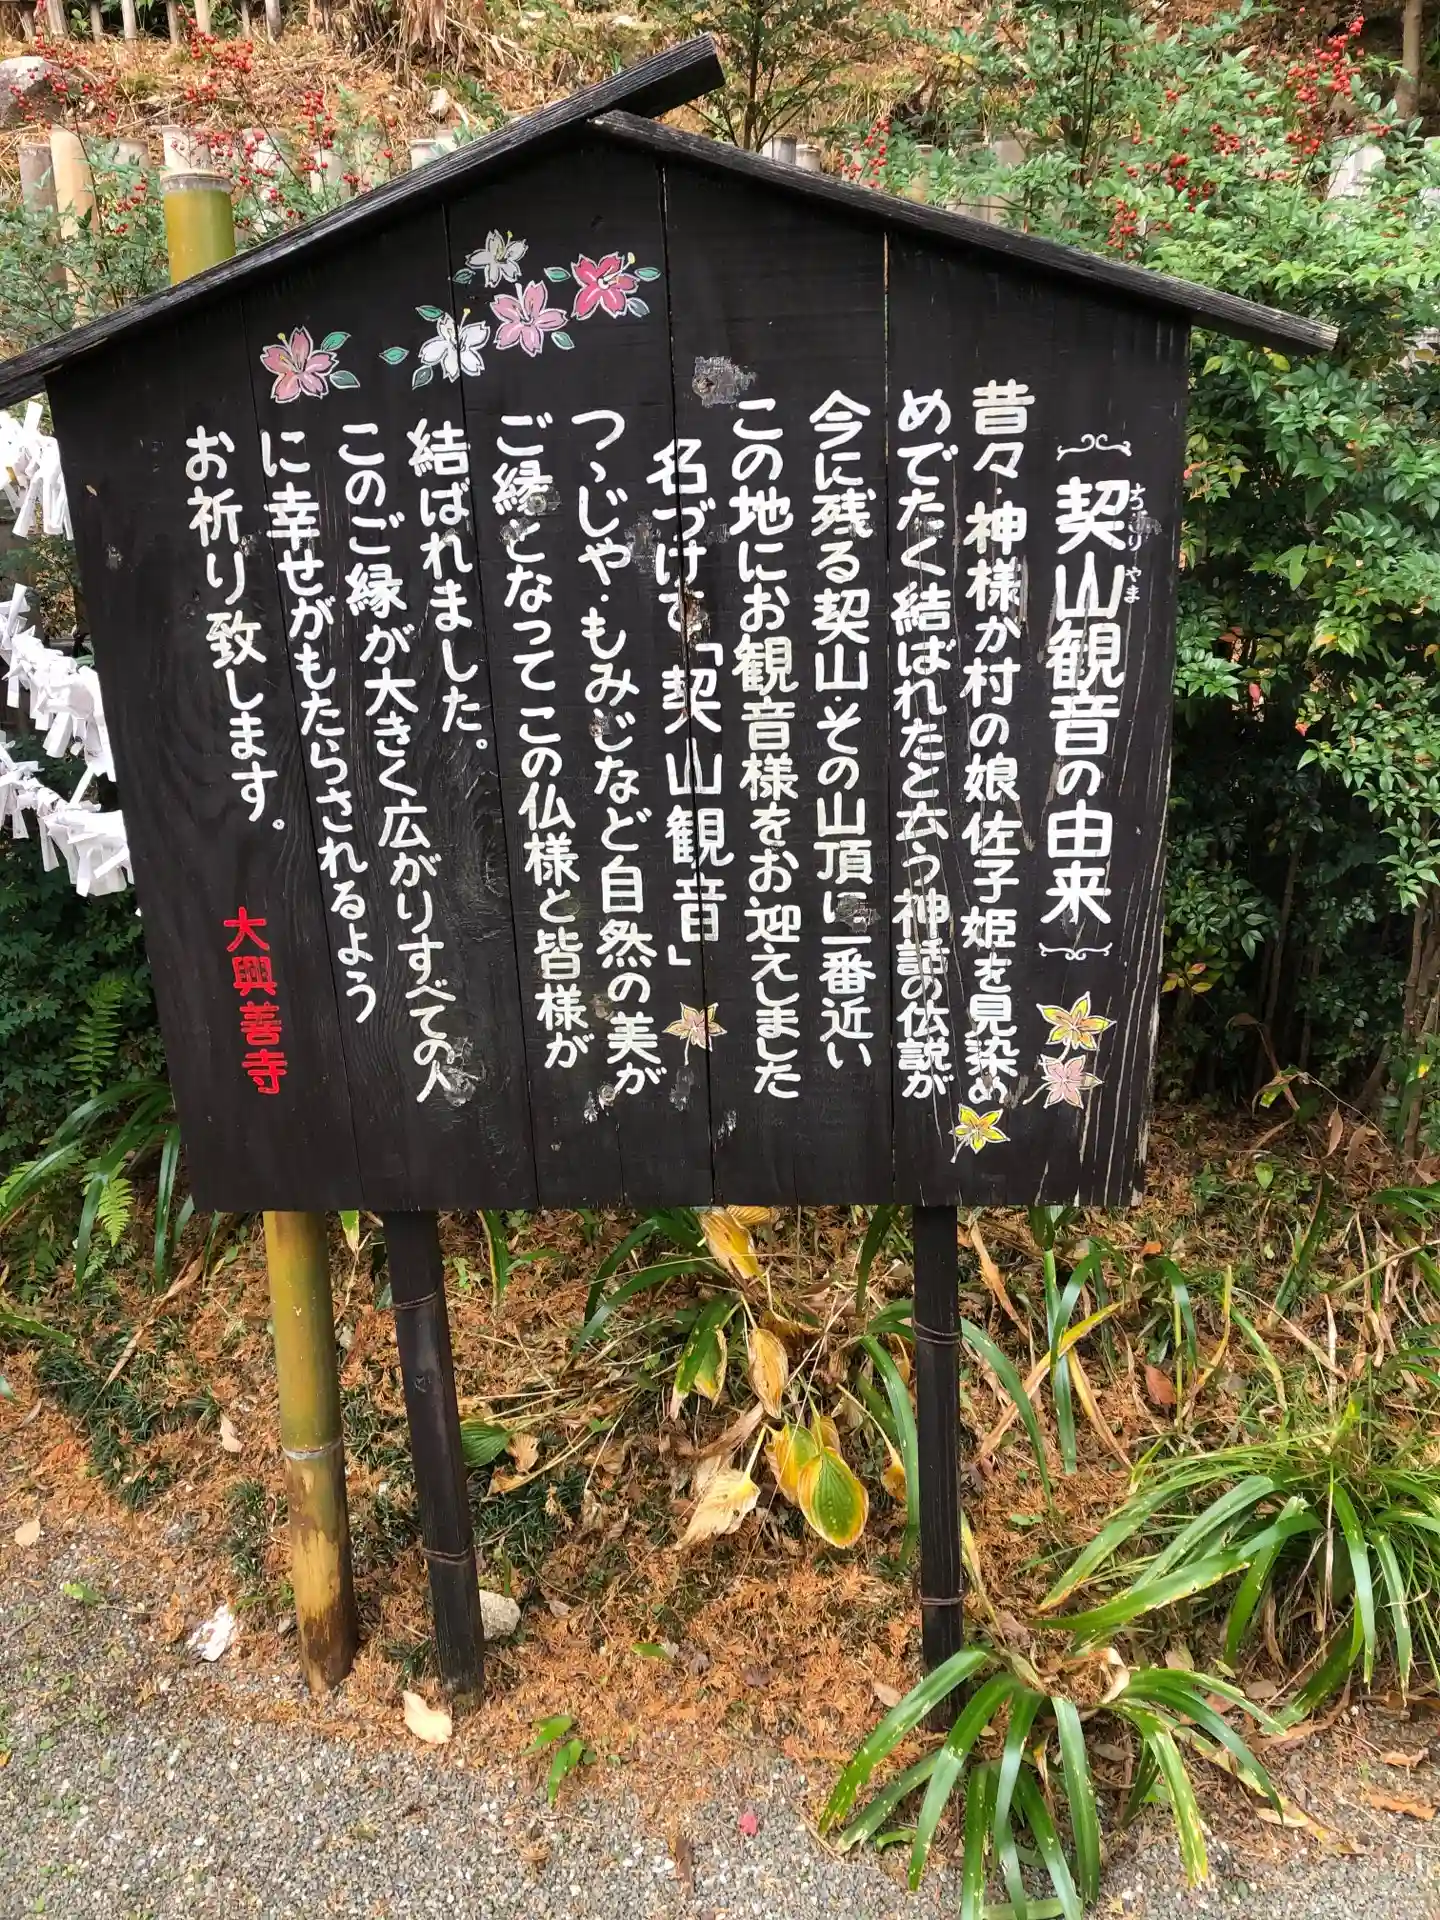 契山観音の由来
ちぎりやま
昔々・神様が村の娘佐子姫を見染め
めでたく結ばれたと云う神話の伝説が
今に残る契山・その山頂に一番近い
この地にお観音様をお迎えしました
名づけて「契山観音」
つゝじや・もみじなど自然の美が
ご縁となってこの仏様と皆様が
結ばれました。
このご縁が大きく広がりすべての人
に幸せがもたらされるよう
お祈り致します。
大興善寺